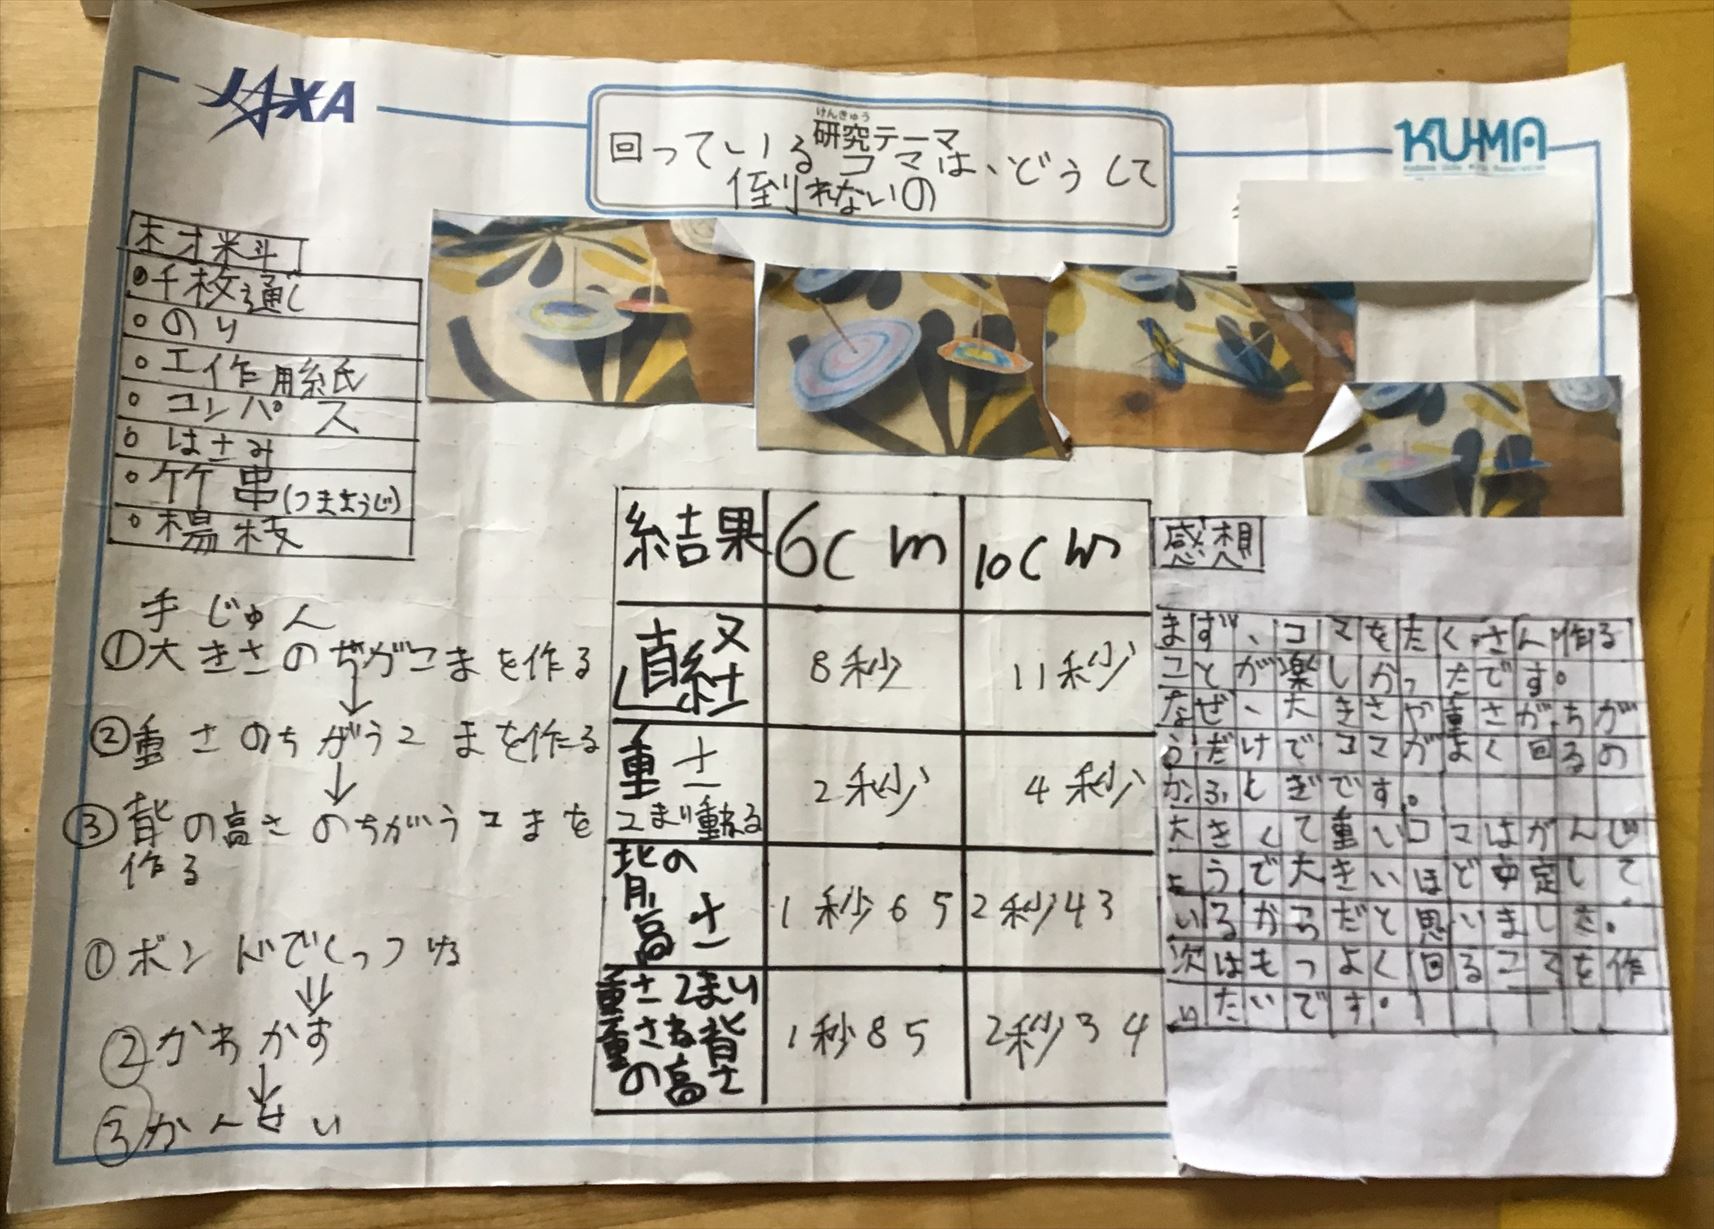 JAXA
けんきゅう
研究テーマ
回っているコマは、どうして
倒れないの
KU-MA
材料
千枚通し
のり
工作用紙
コンパス
はさみ
竹串(つまようじ)
楊枝
手じゅん
①大きさのちがこまを作る
↓
②重さのちがうこまを作る
↓
③背の高さのちがうコまを
作る
①ボンドでくっつける
⇓
②かわかす
↓
③かんせい
結果 6cm 10cm
直経 8秒 11秒
重さ 2秒 4秒
こまい重ねる
背の
高さ 1秒65 2秒43
重さこまい
重さね背
の高さ 1秒85 2秒34
感想
まず、コマをたくさん作る
ことが楽しかったです。
なぜ、大きさや重さがちが
うだけでコマがよく回るの
かふしぎです。
大きくて重いコマはがんじ
ょうで大きいほど安定して
いるからだと思いました。
次はもっよく回るこマを作
りたいです。